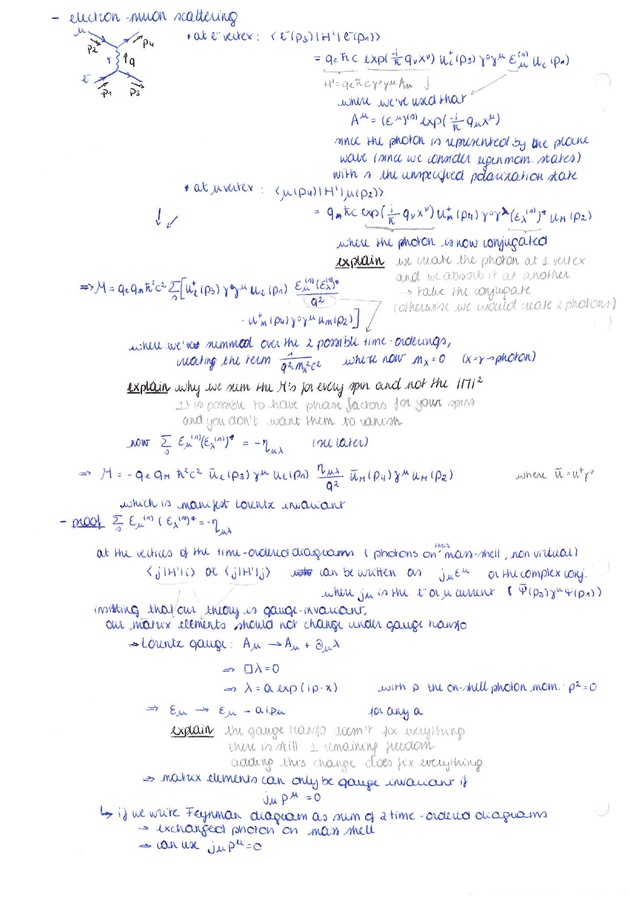 - electron-muon scattering
μ p2 p4
γ ↑q
e⁻ p1 p3
• at e⁻ vertex: <e⁻(p3)|H'|e⁻(p1)>
= qe ħc exp(-i/ħ qν xν) ue†(p3) γ⁰γμ εμ(s) ue(p1)
H' = qe ħc γ⁰γμ Aμ
where we've used that
Aμ = (εμ)(s) exp(-i/ħ qμxμ)
since the photon is represented by the plane
wave (since we consider eigenmom. states)
with s the unspecified polarization state
• at μ vertex: <μ(p4)|H'|μ(p2)>
= qm ħc exp(i/ħ qνxν) um†(p4) γ⁰γλ (ελ(s))* uM(p2)
where the photon is now conjugated
explain we create the photon at 1 vertex
and we absorb it at another
→ take the conjugate
(otherwise we would create 2 photons)
⇒ M = qe qm ħ²c² Σs [ue†(p3) γ⁰γμ ue(p1) εμ(s)(ελ(s))*/q²
· um†(p4) γ⁰γμ um(p2)]
where we've summed over the 2 possible time-orderings,
creating the term 1/q²-mx²c² where now mx = 0 (x=γ→photon)
explain why we sum the M's for every spin and not the |M|²
It is possible to have phase factors for your spins
and you don't want them to vanish
now Σs εμ(s)(ελ(s))* = -ημλ (see later)
⇒ M = - qe qM ħ²c² ūe(p3) γμ ue(p1) ημλ/q² ūM(p4) γμ uM(p2) where ū = u†γ⁰
which is manifest Lorentz invariant
- proof Σs εμ(s)(ελ(s))* = -ημλ
at the vertices of the time-ordered diagrams (photons on their mass-shell, non virtual)
<j|H'|i> or <j|H'|j> can be written as jμεμ or the complex conj.
where jμ is the e⁻ or μ current (Ψ̄(p3)γμΨ(p1))
insisting that our theory is gauge-invariant,
our matrix elements should not change under gauge transfo
→ Lorentz gauge: Aμ → Aμ + ∂μλ
⇒ □λ = 0
⇒ λ = a exp(ip·x) with p the on-shell photon mom. p² = 0
⇒ εμ → εμ - aipμ for any a
explain the gauge transfo doesn't fix everything
there is still 1 remaining freedom
adding this change does fix everything
⇒ matrix elements can only be gauge invariant if
jμpμ = 0
↳ if we write Feynman diagram as sum of 2 time-ordered diagrams
→ exchanged photon on mass shell
→ can use jμpμ = 0